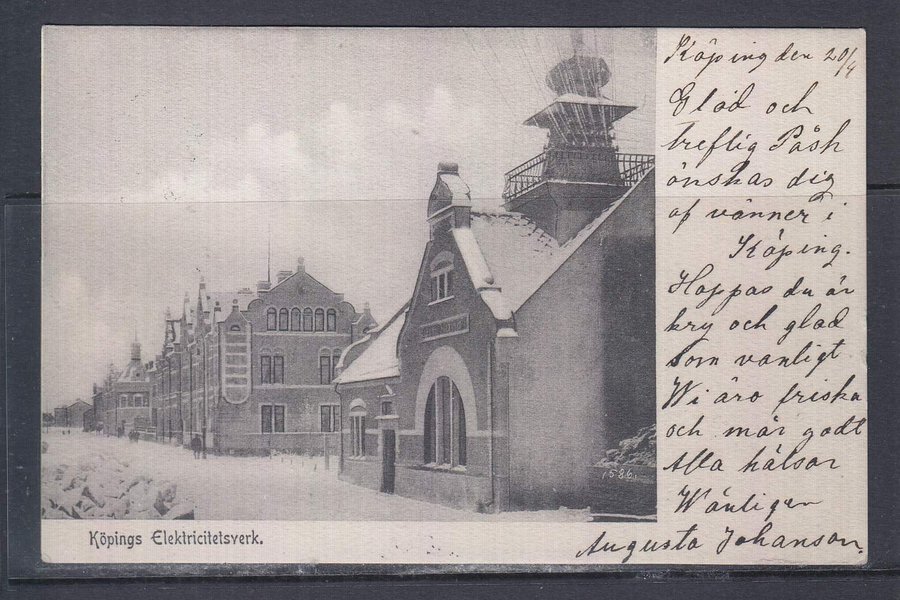 Köping den 20/4
Glad och
treflig Påsk
önskas dig
af vänner i
Köping.
Hoppas du är
kry och glad
som vanligt
Wi äro friska
och mår godt
Alla hälsar
Wänligen
Augusta Johanson.
1586.
Köpings Elektricitetsverk.